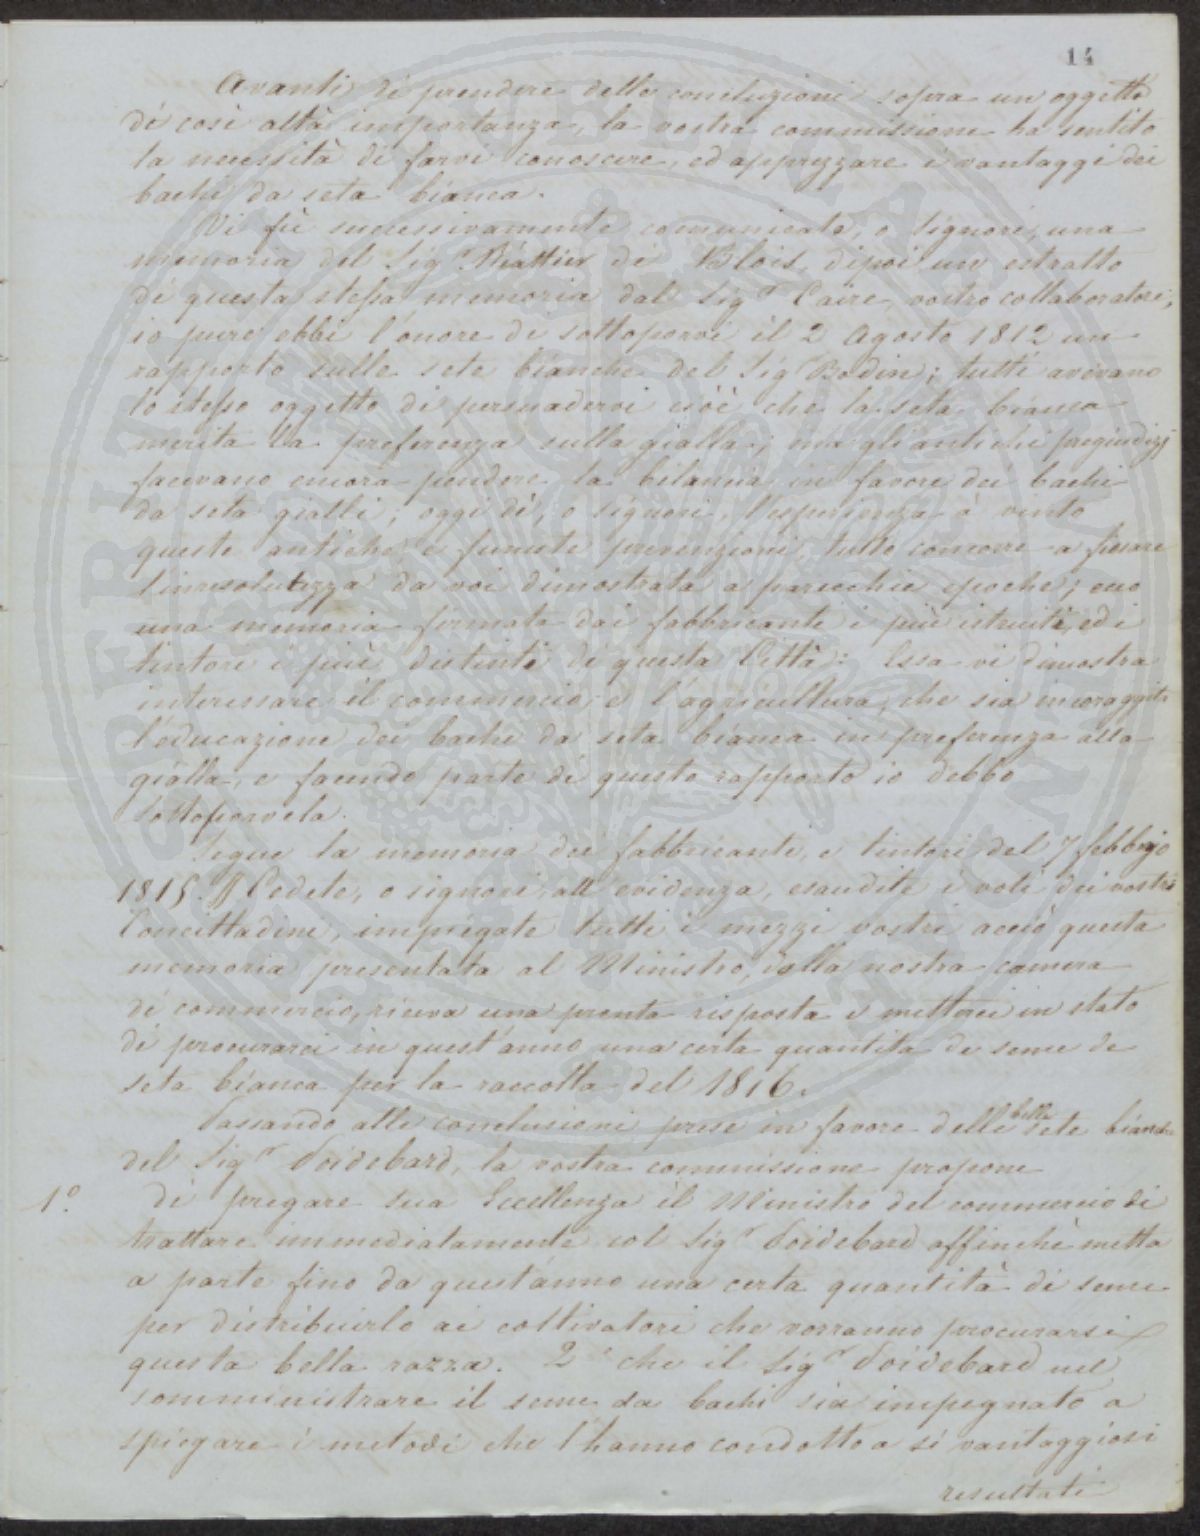 14
Avanti di prendere delle conclusioni sopra un oggetto
di così alta importanza, la vostra commissione ha sentito
la necessità di farvi conoscere, ed apprezzare i vantaggi dei
bachi da seta bianca.
Vi fù successivamente comunicata, o Signori, una
memoria del Sig.r Réattier di Blois, dipoi un estratto
di questa stessa memoria dal Sig.r Caire, vostro collaboratore;
io pure ebbi l'onore di sottoporvi il 2 Agosto 1812 un
rapporto sulle sete bianche del Sig Bodin; tutti avevano
lo stesso oggetto di persuadervi cioè che la seta bianca
merita la preferenza sulla gialla; ma gli antichi pregiudizj
facevano encora pendere la bilancia in favore dei bachi
da seta gialli; oggi dì, o signori, l'esperienza à vinto
queste antiche e funeste prevenzioni, tutto concorre a fissare
l'inresolutezza da voi dimostrata a parecchie epoche; ecco
una memoria firmata dai fabbricanti i più istruiti, ed i
tintori i più distinti di questa Città: Essa vi dimostra
interessare il commercio, e l'agricultura, che sia incoraggita
l'educazione dei bachi da seta bianca in preferenza alla
gialla, e facendo parte di questo rapporto io debbo
sottoporvela.
Segue la memoria dei fabbricanti, e tintori del 7 febbrajo
1815. Cedete, o signori, all'evidenza, esaudite i voti dei vostri
Concittadini, impiegate tutti i mezzi vostri acciò questa
memoria presentata al Ministro, dalla nostra camera
di commercio, riceva una pronta risposta e metterci in stato
di procurarci in quest'anno una certa quantità di seme di
seta bianca per la raccolta del 1816.
Passando alle conclusioni prese in favore delle belle sete bianche
del Sig.r Poidebard, la vostra commissione propone
1.o di pregare sua Eccellenza il Ministro del commercio di
trattare immediatamente col Sig.r Poidebard affinchè metta
a parte fino da quest'anno una certa quantità di seme
per distribuirlo ai coltivatori che vorranno procurarsi
questa bella razza. 2.o che il Sig.r Poidebard nel
somministrare il seme da bachi sia impegnato a
spiegare i metodi che l'hanno condotto a sì vantaggiosi
resultati